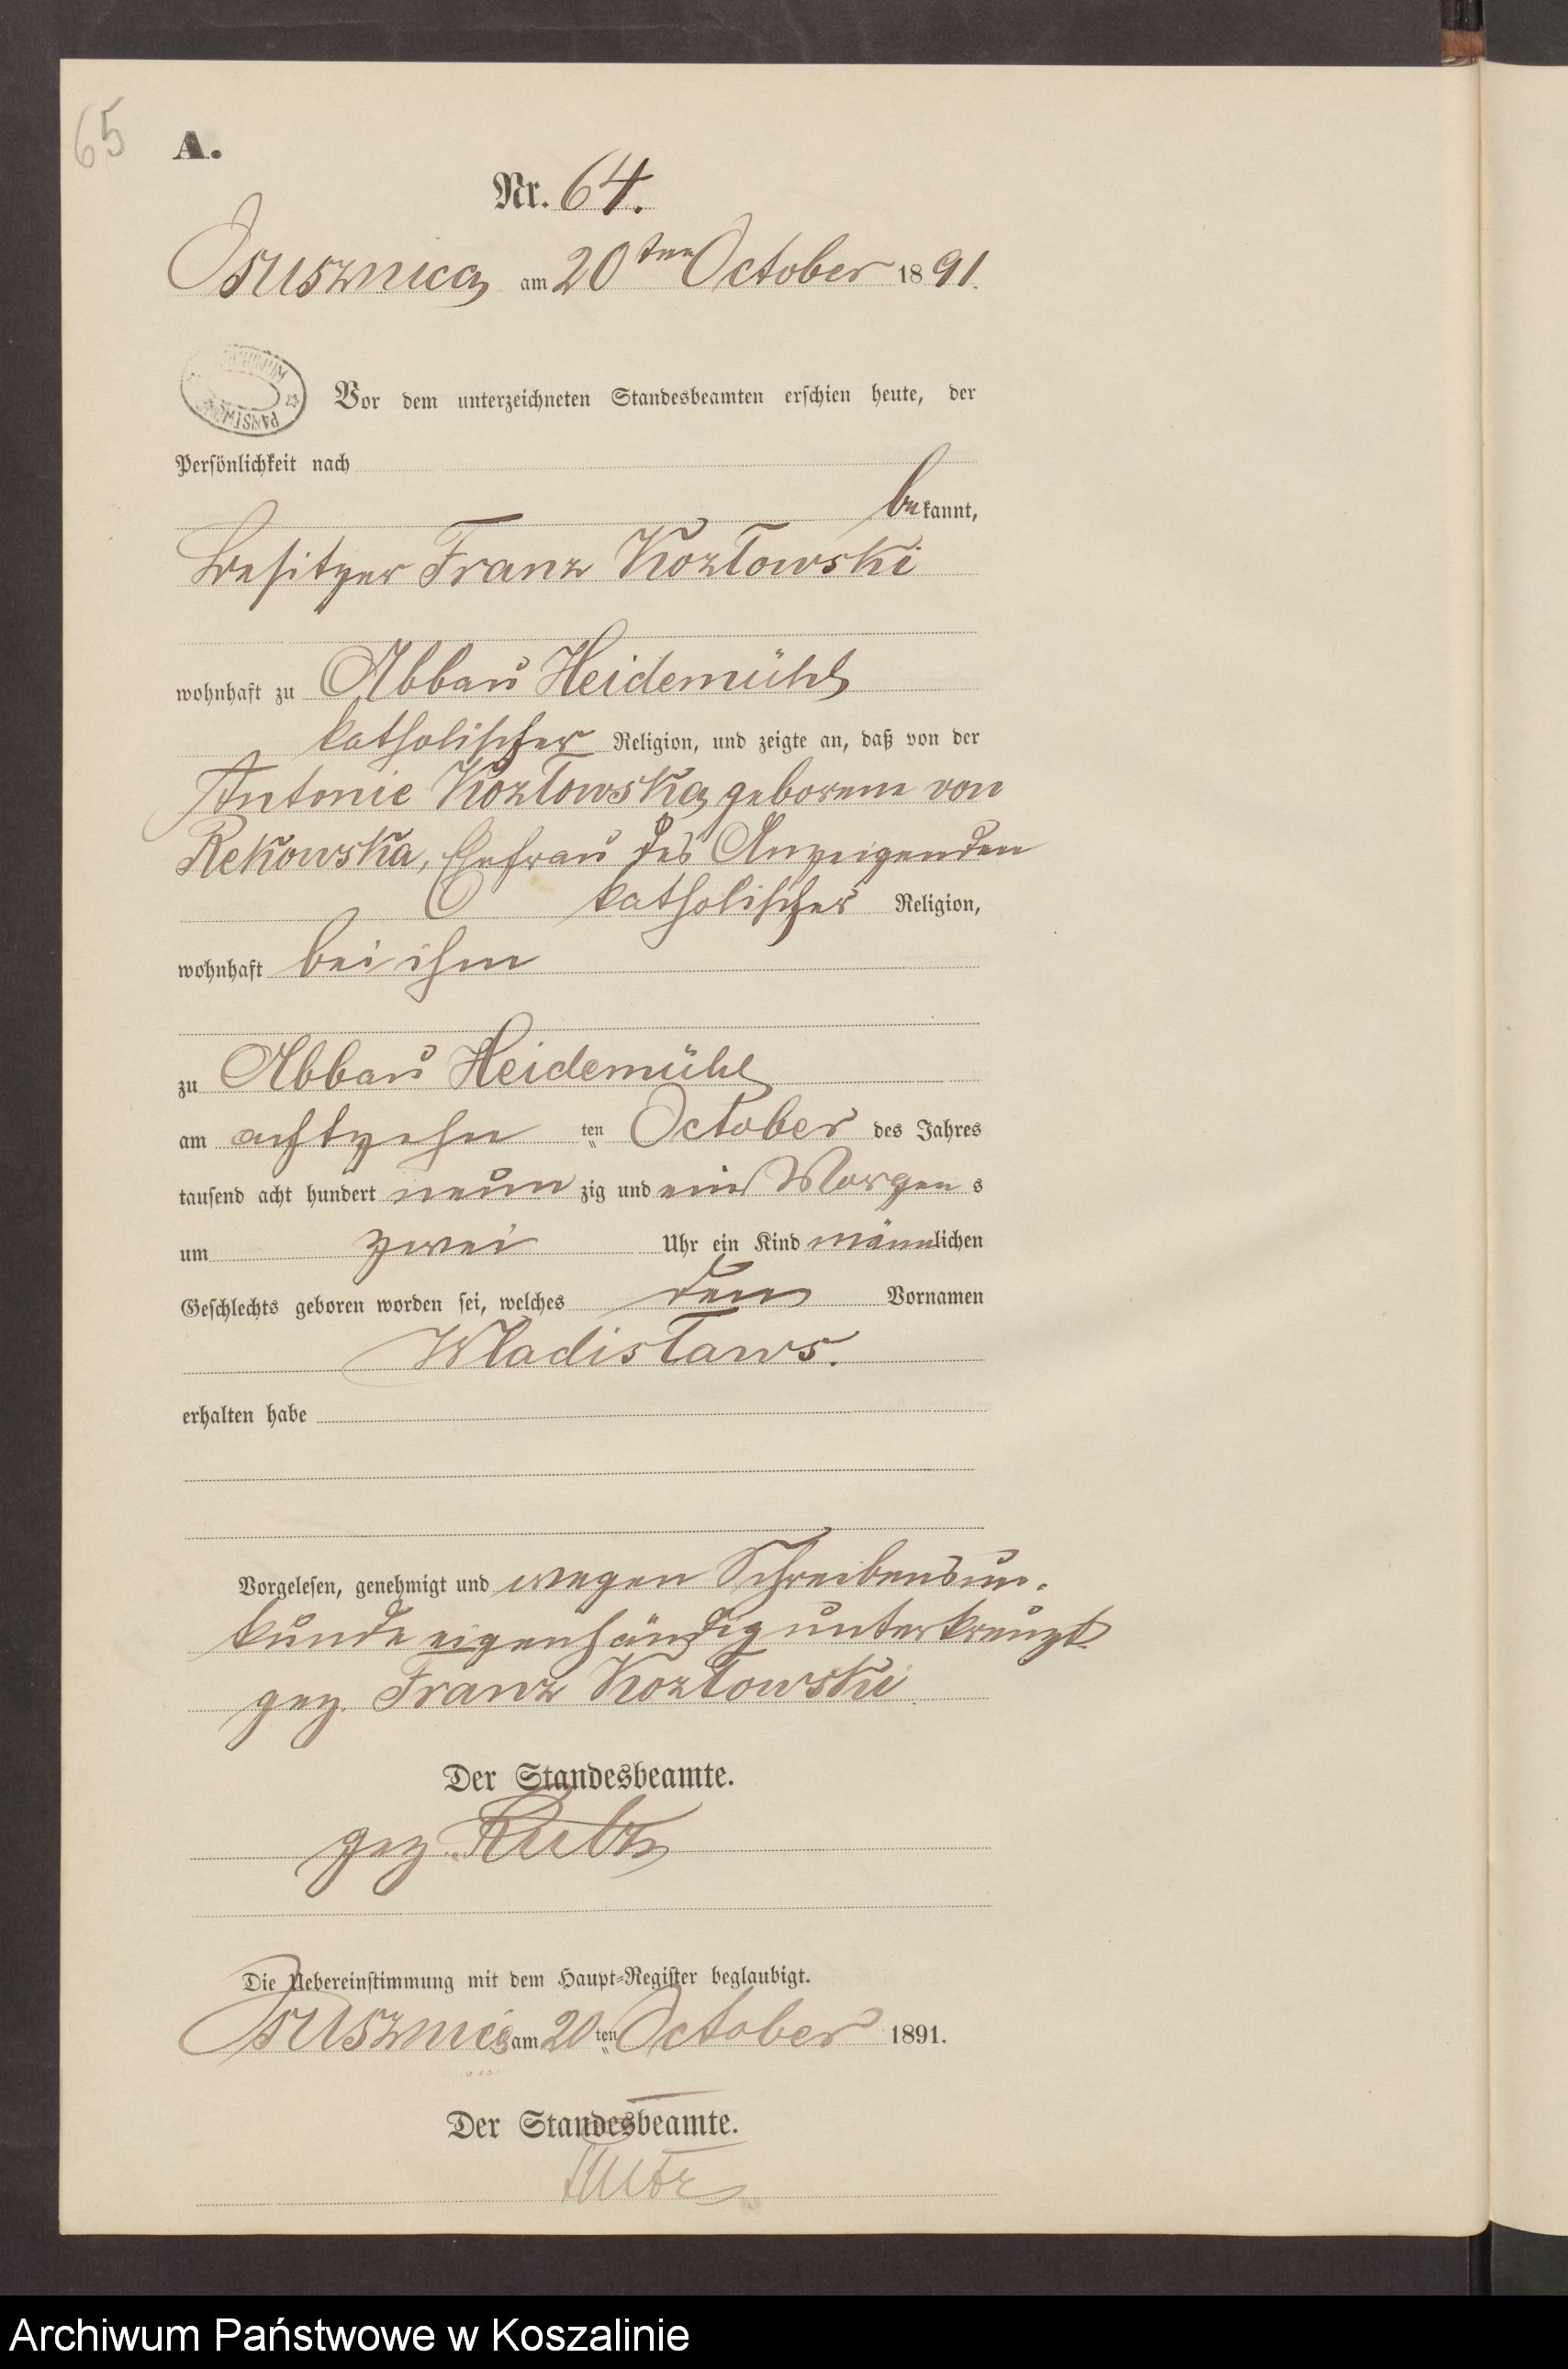 65
A.
Nr. 64.
Osusznica am 20ten October 1891.
PAŃSTWOWE
Vor dem unterzeichneten Standesbeamten erschien heute, der
Persönlichkeit nach
bekannt,
Besitzer Franz Kozłowski
wohnhaft zu Abbau Heidemühl
katholischer Religion, und zeigte an, daß von der
Antonie Kozłowska, geborene von
Rekowska, Ehefrau des Anzeigenden
katholischer Religion,
wohnhaft bei ihm
zu Abbau Heidemühl
am achtzehn ten October des Jahres
tausend acht hundert neun zig und eins Morgens
um zwei Uhr ein Kind männlichen
Geschlechts geboren worden sei, welches den Vornamen
Wladisławs.
erhalten habe
Vorgelesen, genehmigt und wegen Schreibensun-
kunde eigenhändig unterkreuzt
gez. Franz Kozłowski
Der Standesbeamte.
gez.
Die Uebereinstimmung mit dem Haupt-Register beglaubigt.
Osusznica am 20 ten October 1891.
Der Standesbeamte.
Archiwum Państwowe w Koszalinie